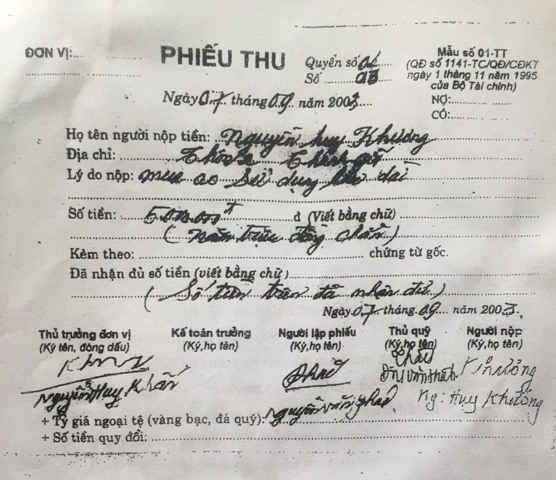 ĐƠN VỊ:
PHIẾU THU
Quyển số 02
Số
Mẫu số 01-TT
(QĐ số 1141-TC/QĐ/CĐKT
ngày 1 tháng 11 năm 1995
của Bộ Tài chính)
Ngày 07 tháng 09 năm 2003
NỢ:
CÓ:
Họ tên người nộp tiền: Nguyễn huy Khương
Địa chỉ: Thôn
Lý do nộp: mua ao Sử dụng lâu dài
Số tiền: 5.000.000đ đ (Viết bằng chữ)
( năm triệu đồng chẵn )
Kèm theo: chứng từ gốc.
Đã nhận đủ số tiền (viết bằng chữ)
( Số tiền trên đã nhận đủ )
Ngày 07 tháng 09 năm 2003
Thủ trưởng đơn vị Kế toán trưởng Người lập phiếu Thủ quỹ Người nộp
(Ký tên, đóng dấu) (Ký, họ tên) (Ký, họ tên) (Ký, họ tên) (Ký, họ tên)
Khương
Nguyễn Huy Ng: Huy Khương
Nguyễn văn
+ Tỷ giá ngoại tệ (vàng bạc, đá quý):
+ Số tiền quy đổi: